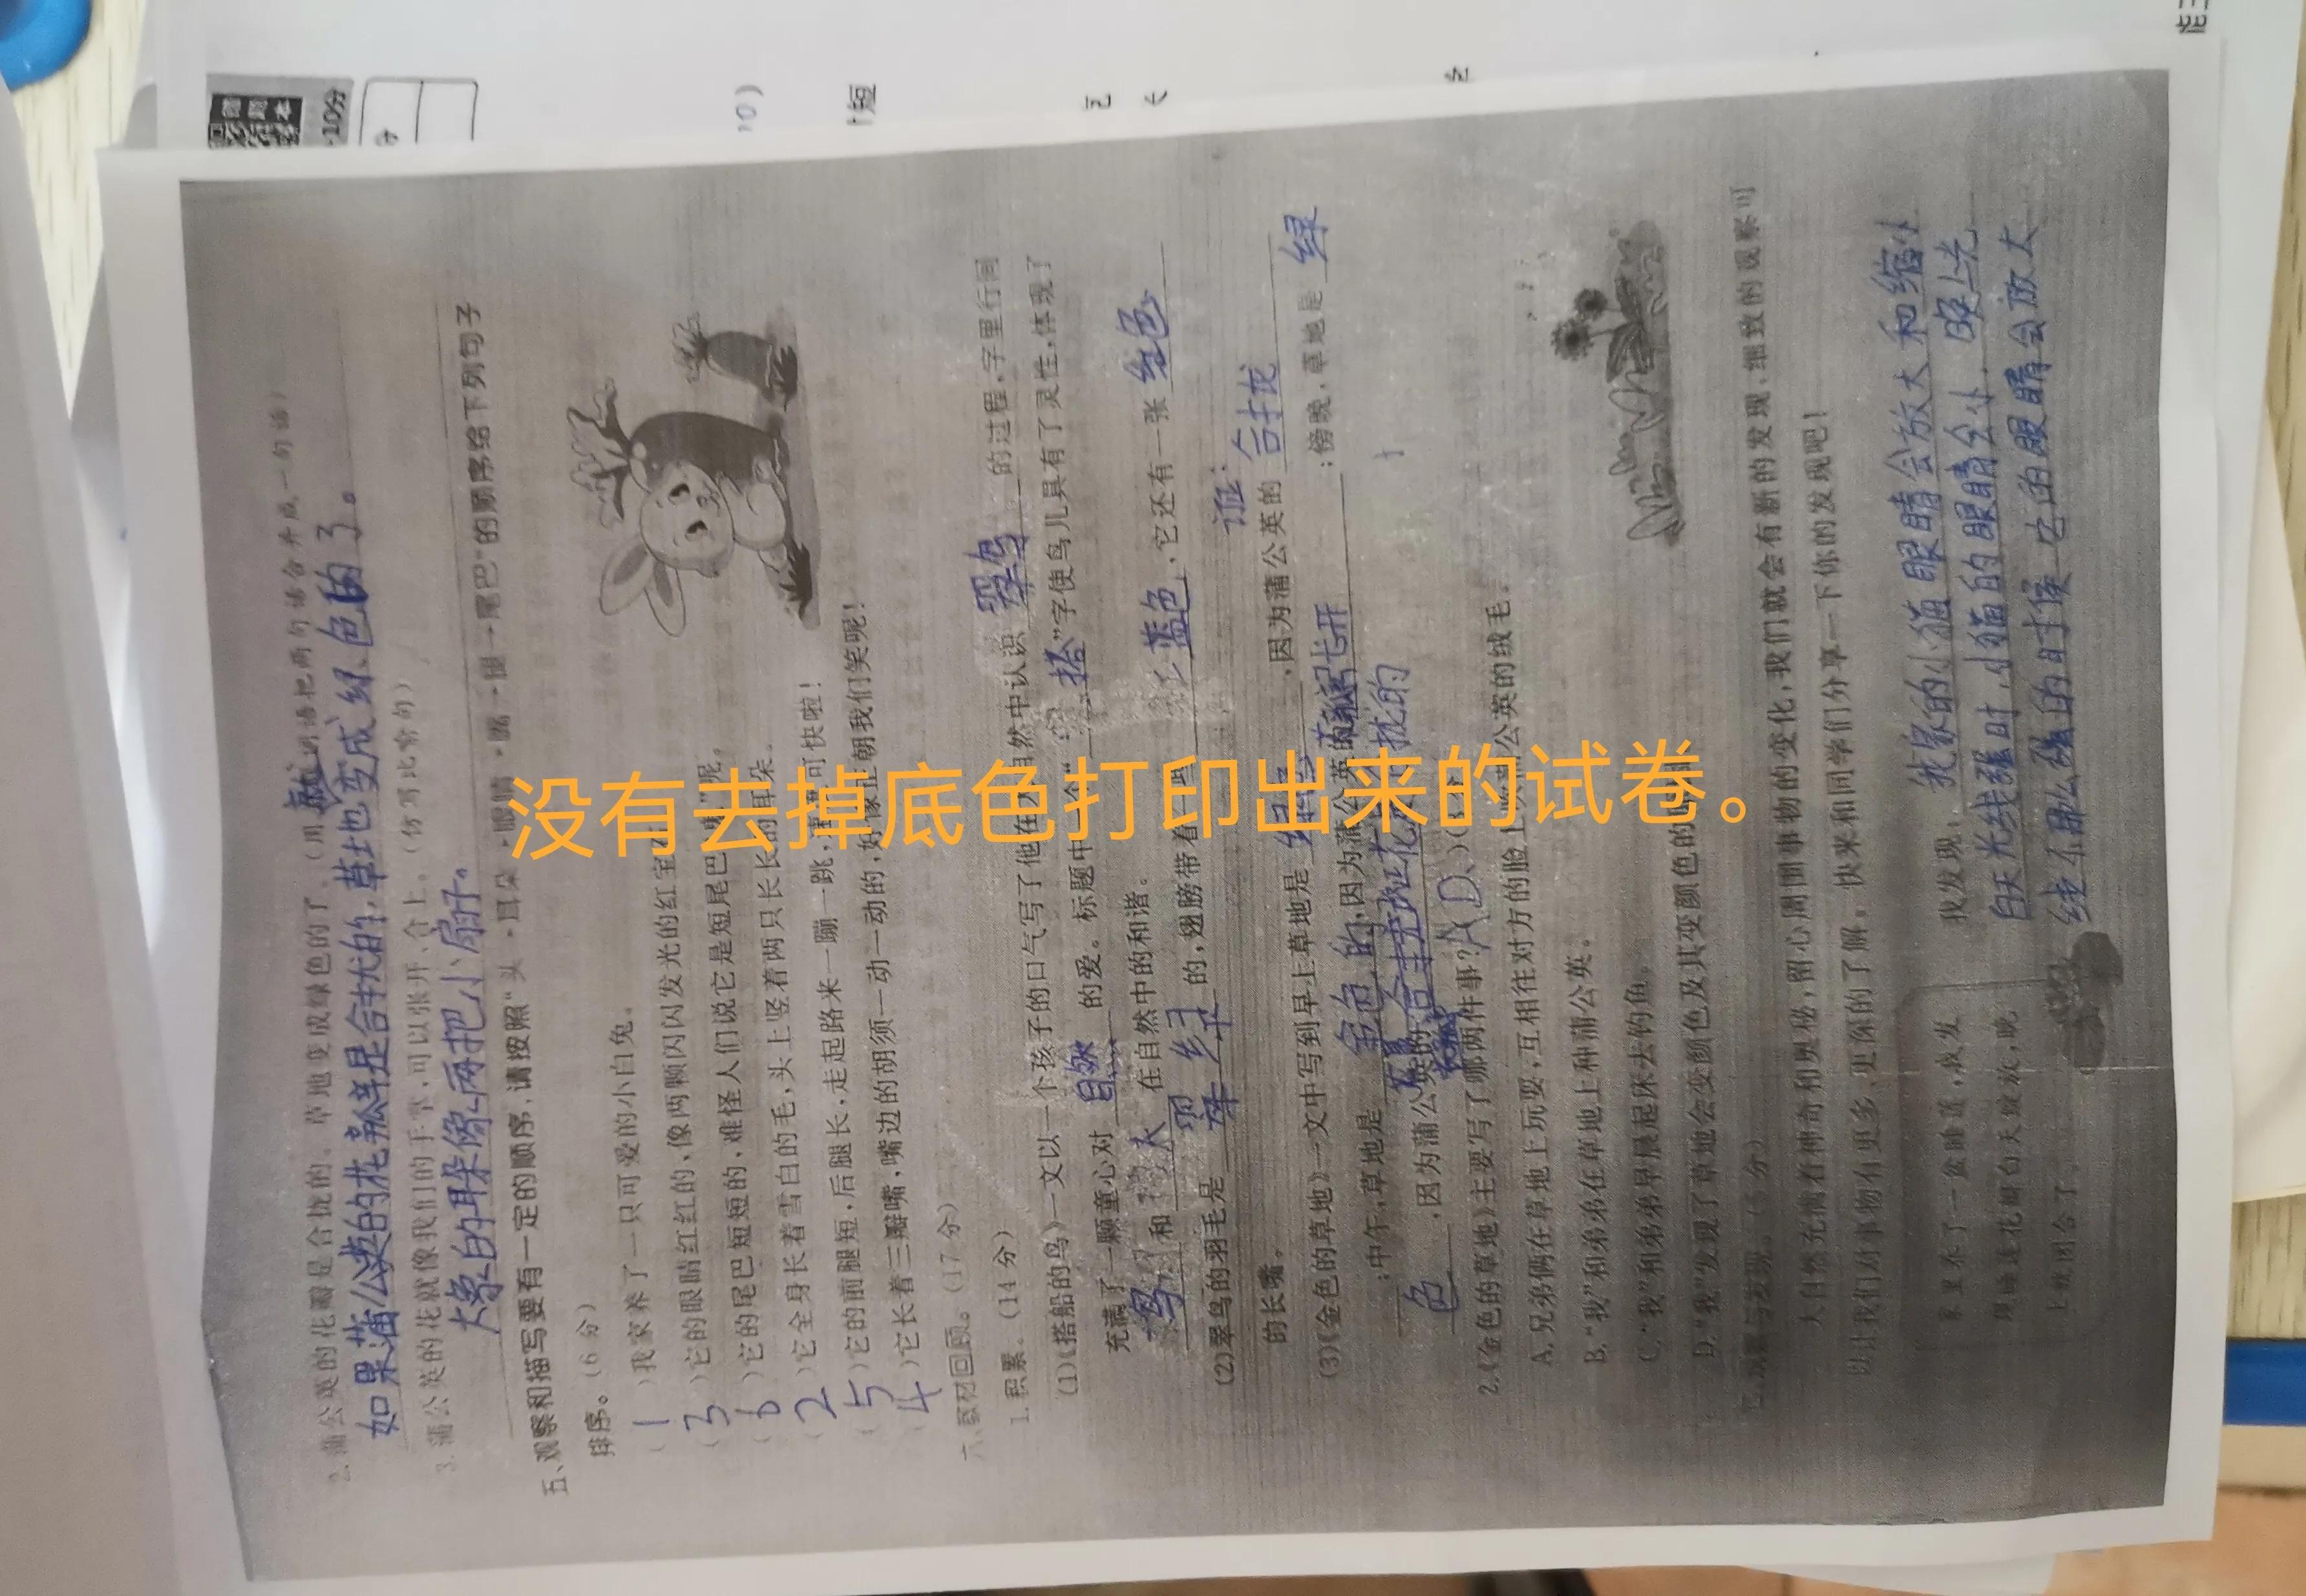 2.蒲公英的花瓣是合拢的。草地变成绿色的了。(用词语把两句话合并成一句话)
如果蒲公英的花瓣是合拢的,草地也变成绿色的了。
3.蒲公英的花就像我们的手掌,可以张开、合上。(仿写比喻句)
大象的耳朵像两把小扇子。
五、观察和描写要有一定的顺序,请按照“头→耳朵→眼睛→嘴→腿→尾巴”的顺序给下列句子
排序。(6分)
(1)我家养了一只可爱的小白兔。
(3)它的眼睛红红的,像两颗闪闪发光的红宝石
(6)它的尾巴短短的,难怪人们说它是短尾巴
(2)它全身长着雪白的毛,头上竖着两只长长的耳朵。
(5)它的前腿短,后腿长,走起路来一蹦一跳,可快啦!
(4)它长着三瓣嘴,嘴边的胡须一动一动的,好像正朝我们笑呢!
六、教材回顾。(17分)
1.积累。(14分)
(1)《搭船的鸟》一文以一个孩子的口气写了他在大自然中认识 翠鸟 的过程,字里行间
充满了一颗童心对 自然 的爱。标题中“搭”字使鸟儿具有了灵性,体现了
鸟 和 人 在自然中的和谐。
(2)翠鸟的羽毛是 翠绿 的,翅膀带着一些 蓝色 ,它还有一张 红色
的长嘴。
(3)《金色的草地》一文中写到早上草地是 绿色 ,因为蒲公英的 合拢
;中午,草地是 金色的 ,因为蒲公英的 张开 ;傍晚,草地是 绿
色 ,因为蒲公英的 拢的
2.《金色的草地》主要写了哪两件事?(A D)
A.兄弟俩在草地上玩耍,互相往对方的脸上吹蒲公英的绒毛。
B.“我”和弟弟在草地上种蒲公英。
C.“我”和弟弟早晨起床去钓鱼。
D.“我”发现了草地会变颜色及其变颜色的
七、观察与发现。(5分)
大自然充满着神奇和奥秘,留心周围事物的变化,我们就会有新的发现,细致的观察可
以让我们对事物有更多、更深的了解。快来和同学们分享一下你的发现吧!
家里养了一盆睡莲,我发
现睡莲花瓣白天绽放,晚
上就闭合了。
我发现,我家的小猫眼睛会放大和缩小
白天光线强时,小猫的眼睛会小,晚上光
线不那么强的时候它的眼睛会放大
没有去掉底色打印出来的试卷。